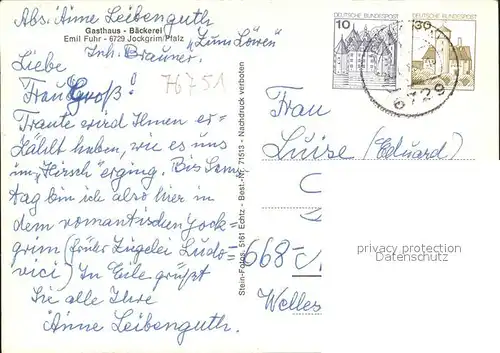 Abs. Anne Leibenguth
Gasthaus - Bäckerei
"Zum Löwen"
Emil Fuhr - 6729 Jockgrim/Pfalz
Inh. Brauner.
76751
Liebe
Frau Groß!
Traute wird Ihnen er-
zählt haben, wie es uns
im "Hirsch" erging. Bis Sams
tag bin ich also hier in
dem romantischen Jock-
grim (früher Zügelei Ludo-
vici) In Eile grüßt
Sie alle Ihre
Anne Leibenguth.
Stein-Fotos, 5161 Echtz - Best.-Nr. 71513 - Nachdruck verboten
10 DEUTSCHE BUNDESPOST
DEUTSCHE BUNDESPOST 30
6729
Frau
Luise (Eduard)
668
Welles
privacy protection
Datenschutz